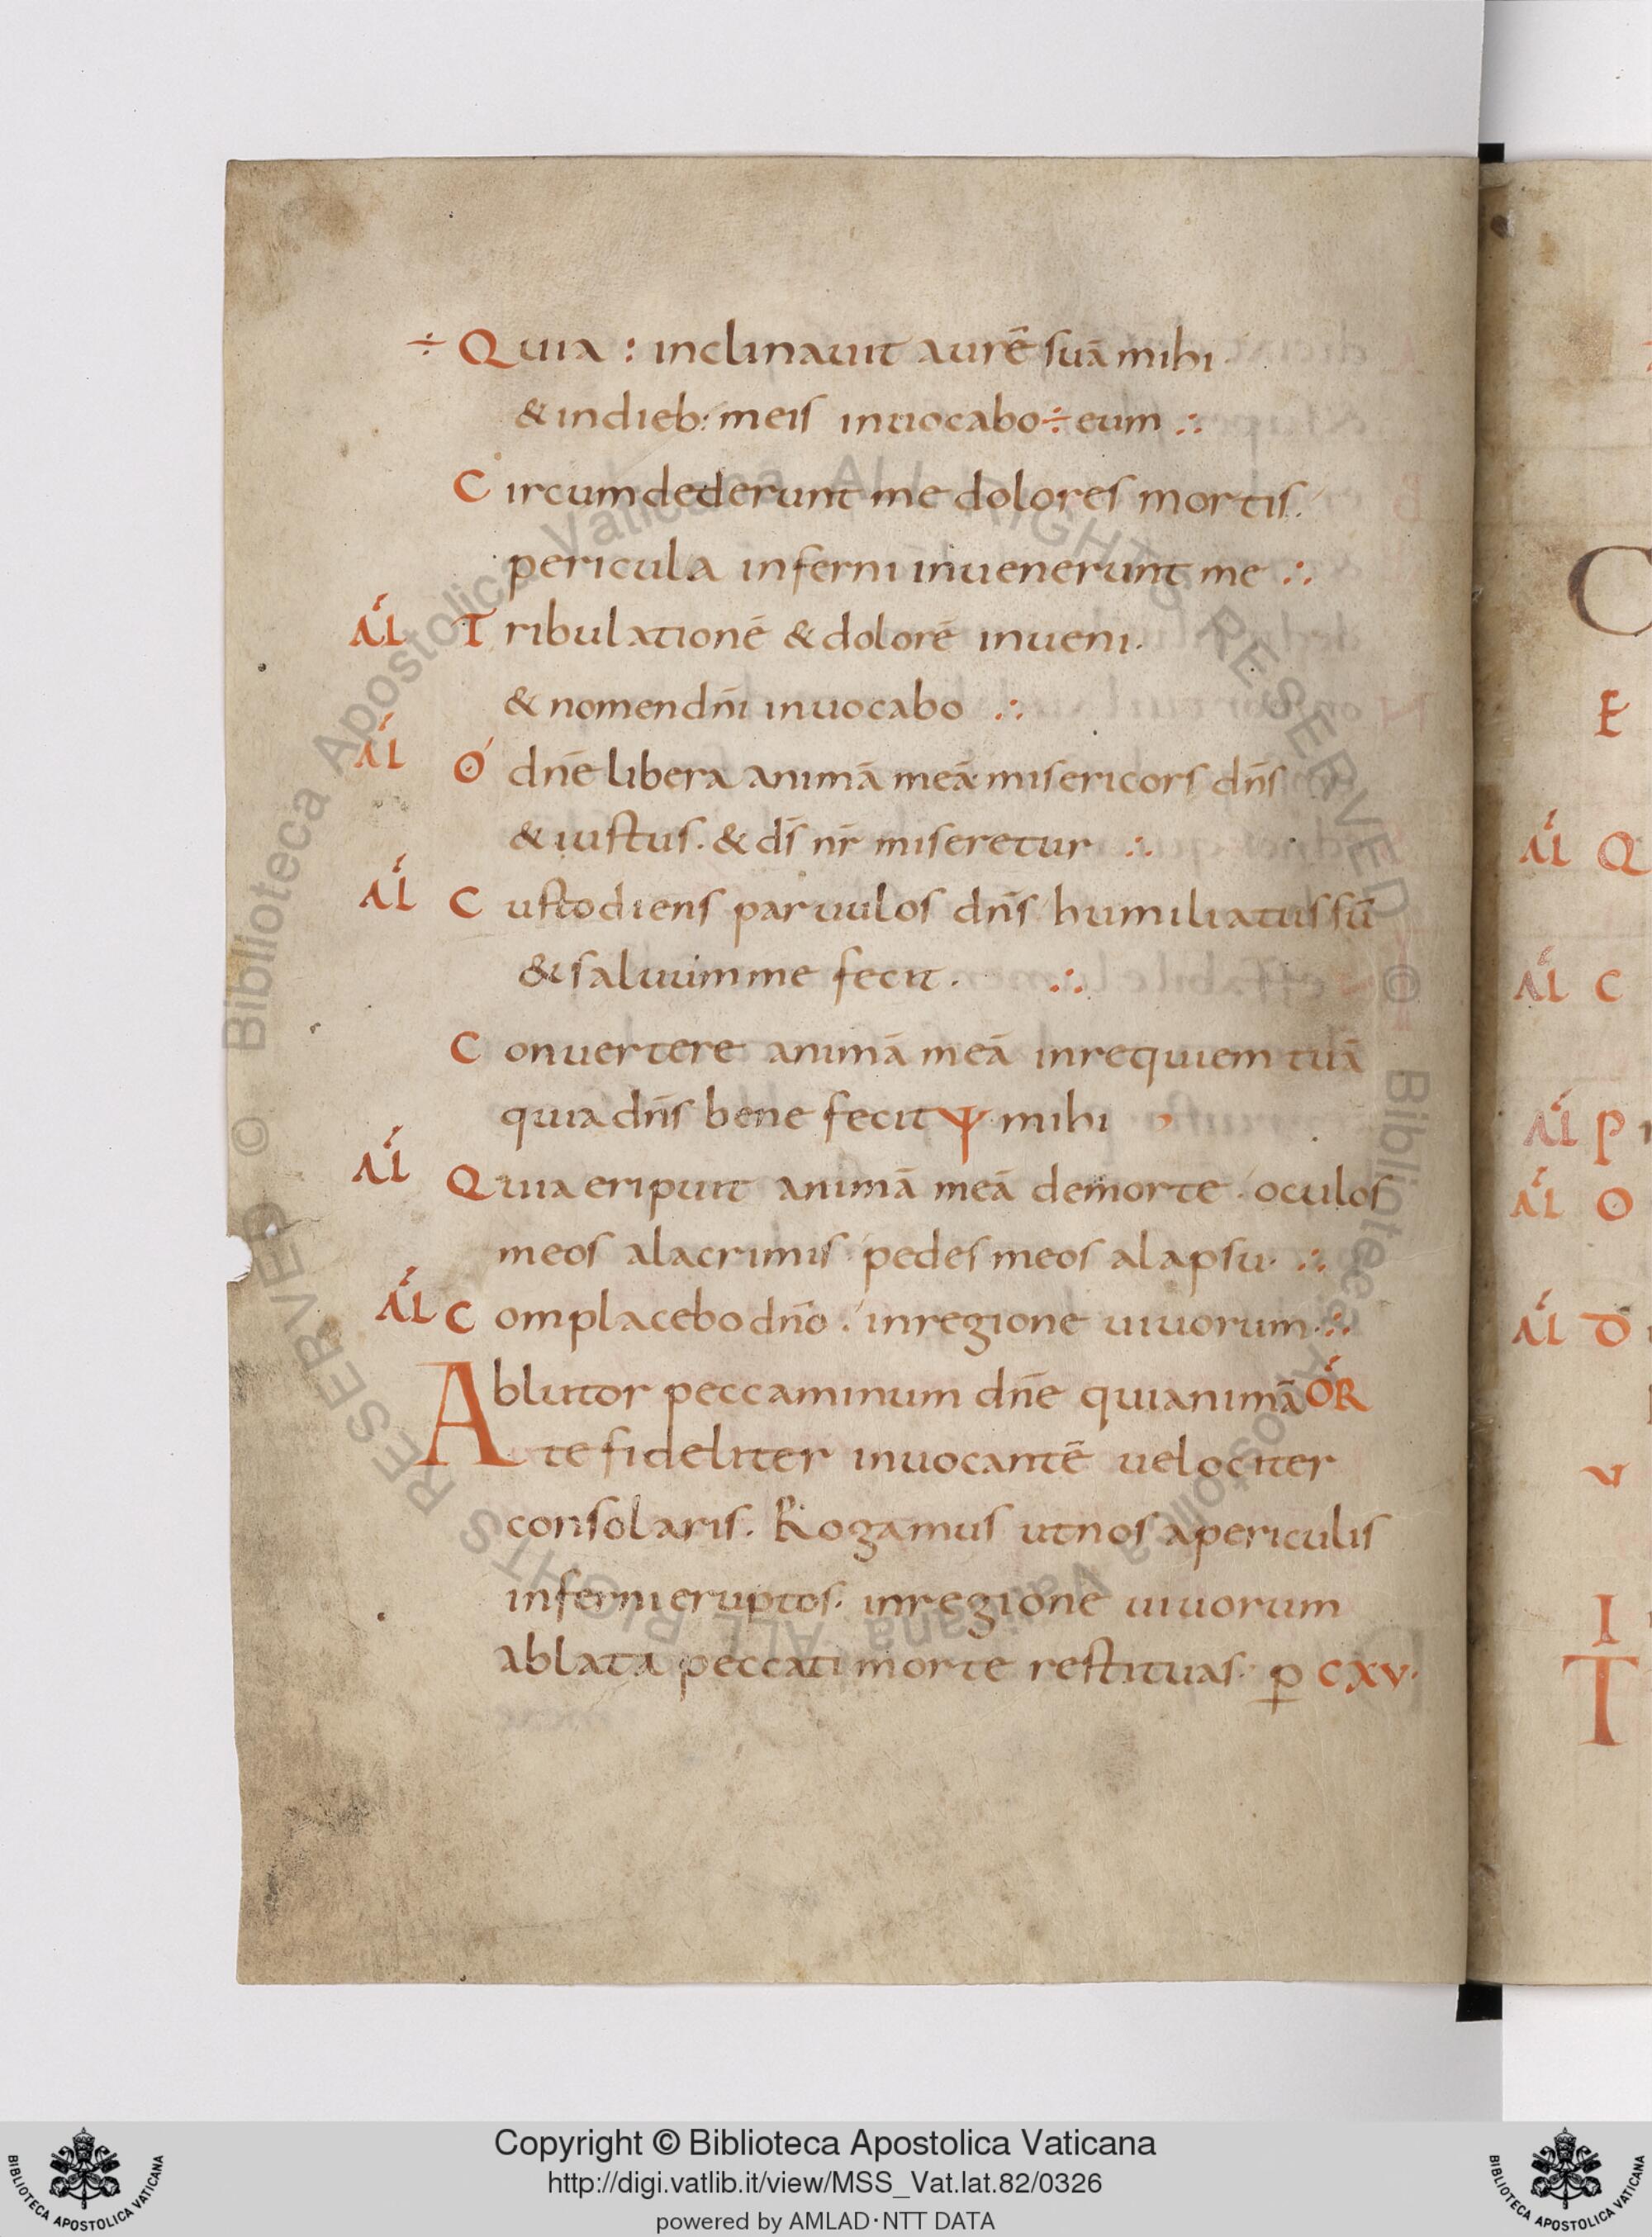 ÷ Quia : inclinauit aurē suā mihi.
& indieb: meis inuocabo ÷ eum ∴
Circumdederunt me dolores mortis.
pericula inferni inuenerunt me ∴
AL Tribulationē & dolorē inueni.
& nomendn̄i inuocabo ∴
AL O dn̄e libera animā meā misericors dn̄s
& iustus. & ds̄ nr̄ miseretur ∴
AL Custodiens paruulos dn̄s humiliatus sū
& saluum me fecit. ∴
Conuertere animā meā inrequiem tuā
quia dn̄s bene fecit ψ mihi
AL Quia eripuit animā meā demorte. oculos
meos alacrimis. pedes meos alapsu. ∴
AL Complacebo dn̄o. inregione uiuorum. ∴
Ablutor peccaminum dn̄e quianimā OR
te fideliter inuocantē velociter
consolaris. Rogamus utnos apericulis
inferni eruptos. inregione uiuorum
ablata peccati morte restituas. ꝑ CXV.
C
E
AL Q
AL C
AL P
AL O
AL D
I
T
© Biblioteca Apostolica Vaticana ALL RIGHTS RESERVED © Biblioteca Apostolica Vaticana ALL RIGHTS RESERVED
BIBLIOTECA APOSTOLICA VATICANA
Copyright © Biblioteca Apostolica Vaticana
http://digi.vatlib.it/view/MSS_Vat.lat.82/0326
powered by AMLAD·NTT DATA
BIBLIOTECA APOSTOLICA VATICANA